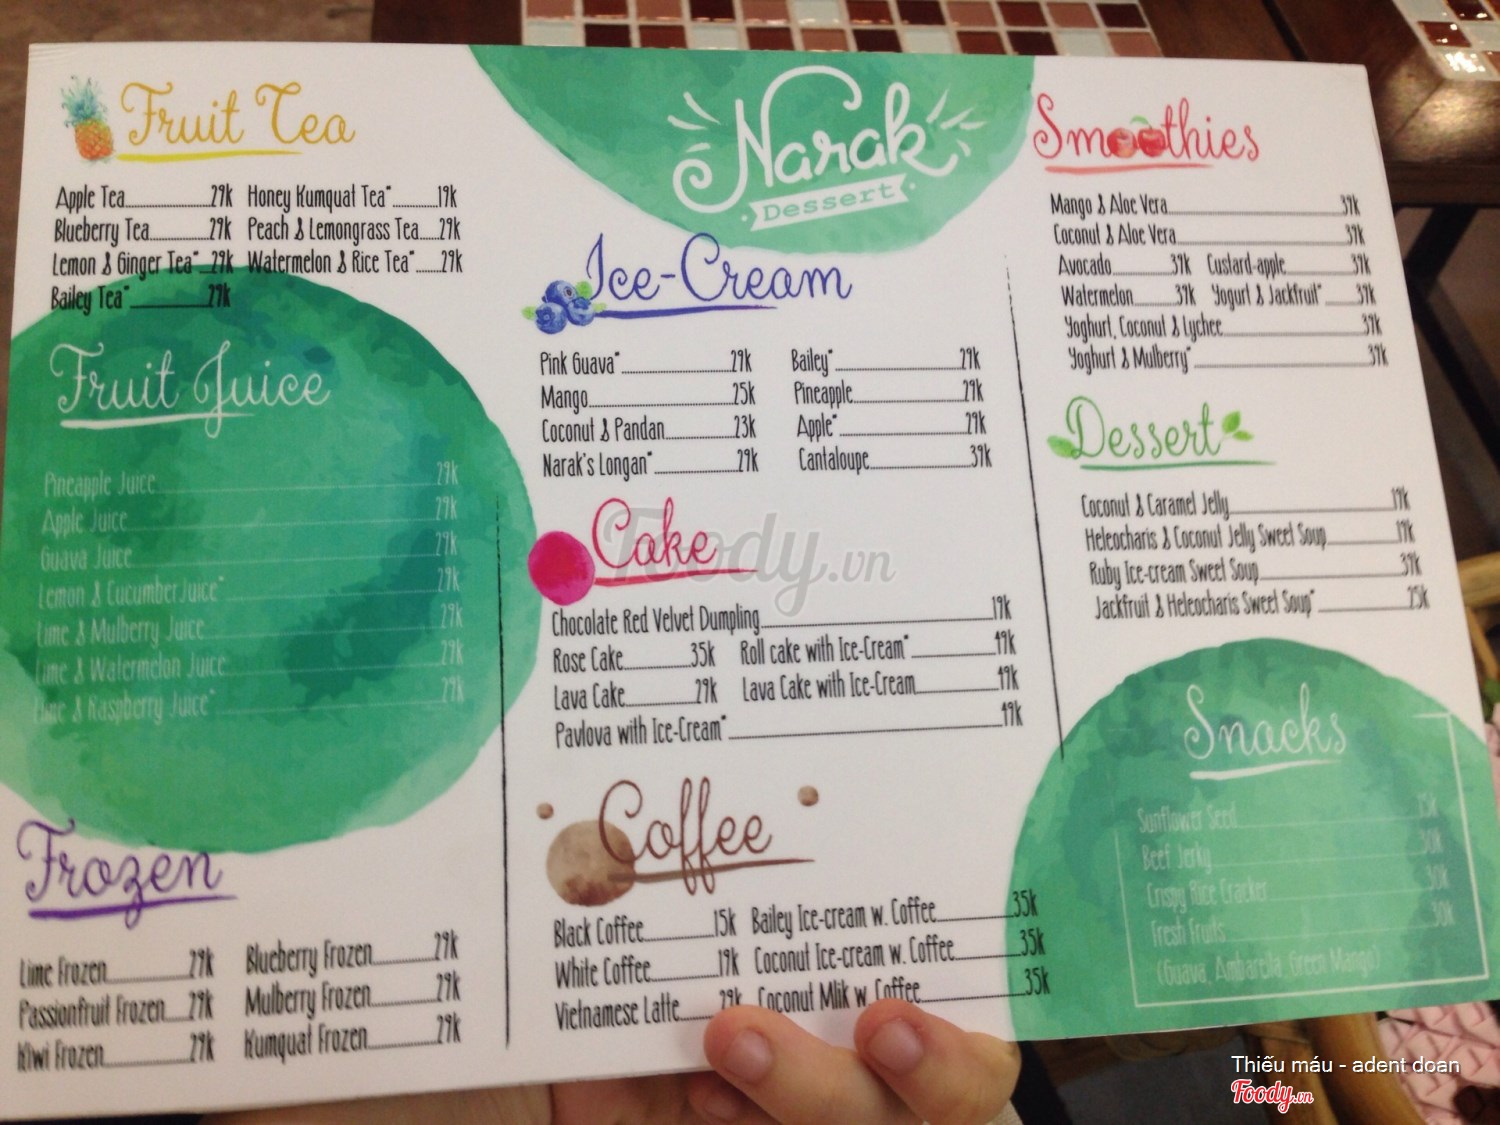 Narak
Dessert
Fruit Tea
Apple Tea 29k
Blueberry Tea 29k
Lemon & Ginger Tea* 29k
Bailey Tea* 29k
Honey Kumquat Tea* 19k
Peach & Lemongrass Tea 29k
Watermelon & Rice Tea* 29k
Fruit Juice
Pineapple Juice 29k
Apple Juice 29k
Guava Juice 29k
Lemon & Cucumber Juice* 29k
Lime & Mulberry Juice 29k
Lime & Watermelon Juice 29k
Lime & Raspberry Juice* 29k
Frozen
Lime Frozen 29k
Passionfruit Frozen 29k
Kiwi Frozen 29k
Blueberry Frozen 29k
Mulberry Frozen 29k
Kumquat Frozen 29k
Ice-Cream
Pink Guava* 29k
Mango 25k
Coconut & Pandan 23k
Narak's Longan* 29k
Bailey* 29k
Pineapple 29k
Apple* 29k
Cantaloupe 39k
Cake
Chocolate Red Velvet Dumpling 19k
Rose Cake 35k
Roll cake with Ice-Cream* 49k
Lava Cake 29k
Lava Cake with Ice-Cream 49k
Pavlova with Ice-Cream* 49k
Coffee
Black Coffee 15k
White Coffee 19k
Vietnamese Latte 29k
Bailey Ice-cream w. Coffee 35k
Coconut Ice-cream w. Coffee 35k
Coconut Mlik w. Coffee 35k
Smoothies
Mango & Aloe Vera 39k
Coconut & Aloe Vera 39k
Avocado 39k
Custard-apple 39k
Watermelon 39k
Yogurt & Jackfruit* 39k
Yoghurt, Coconut & Lychee 39k
Yoghurt & Mulberry* 39k
Dessert
Coconut & Caramel Jelly 19k
Heleocharis & Coconut Jelly Sweet Soup 19k
Ruby Ice-cream Sweet Soup 39k
Jackfruit & Heleocharis Sweet Soup* 25k
Snacks
Sunflower Seed 15k
Beef Jerky 30k
Crispy Rice Cracker 30k
Fresh Fruits 30k
(Guava, Ambarella, Green Mango)
Foody.vn
Thiếu máu - adent doan
Foody.vn